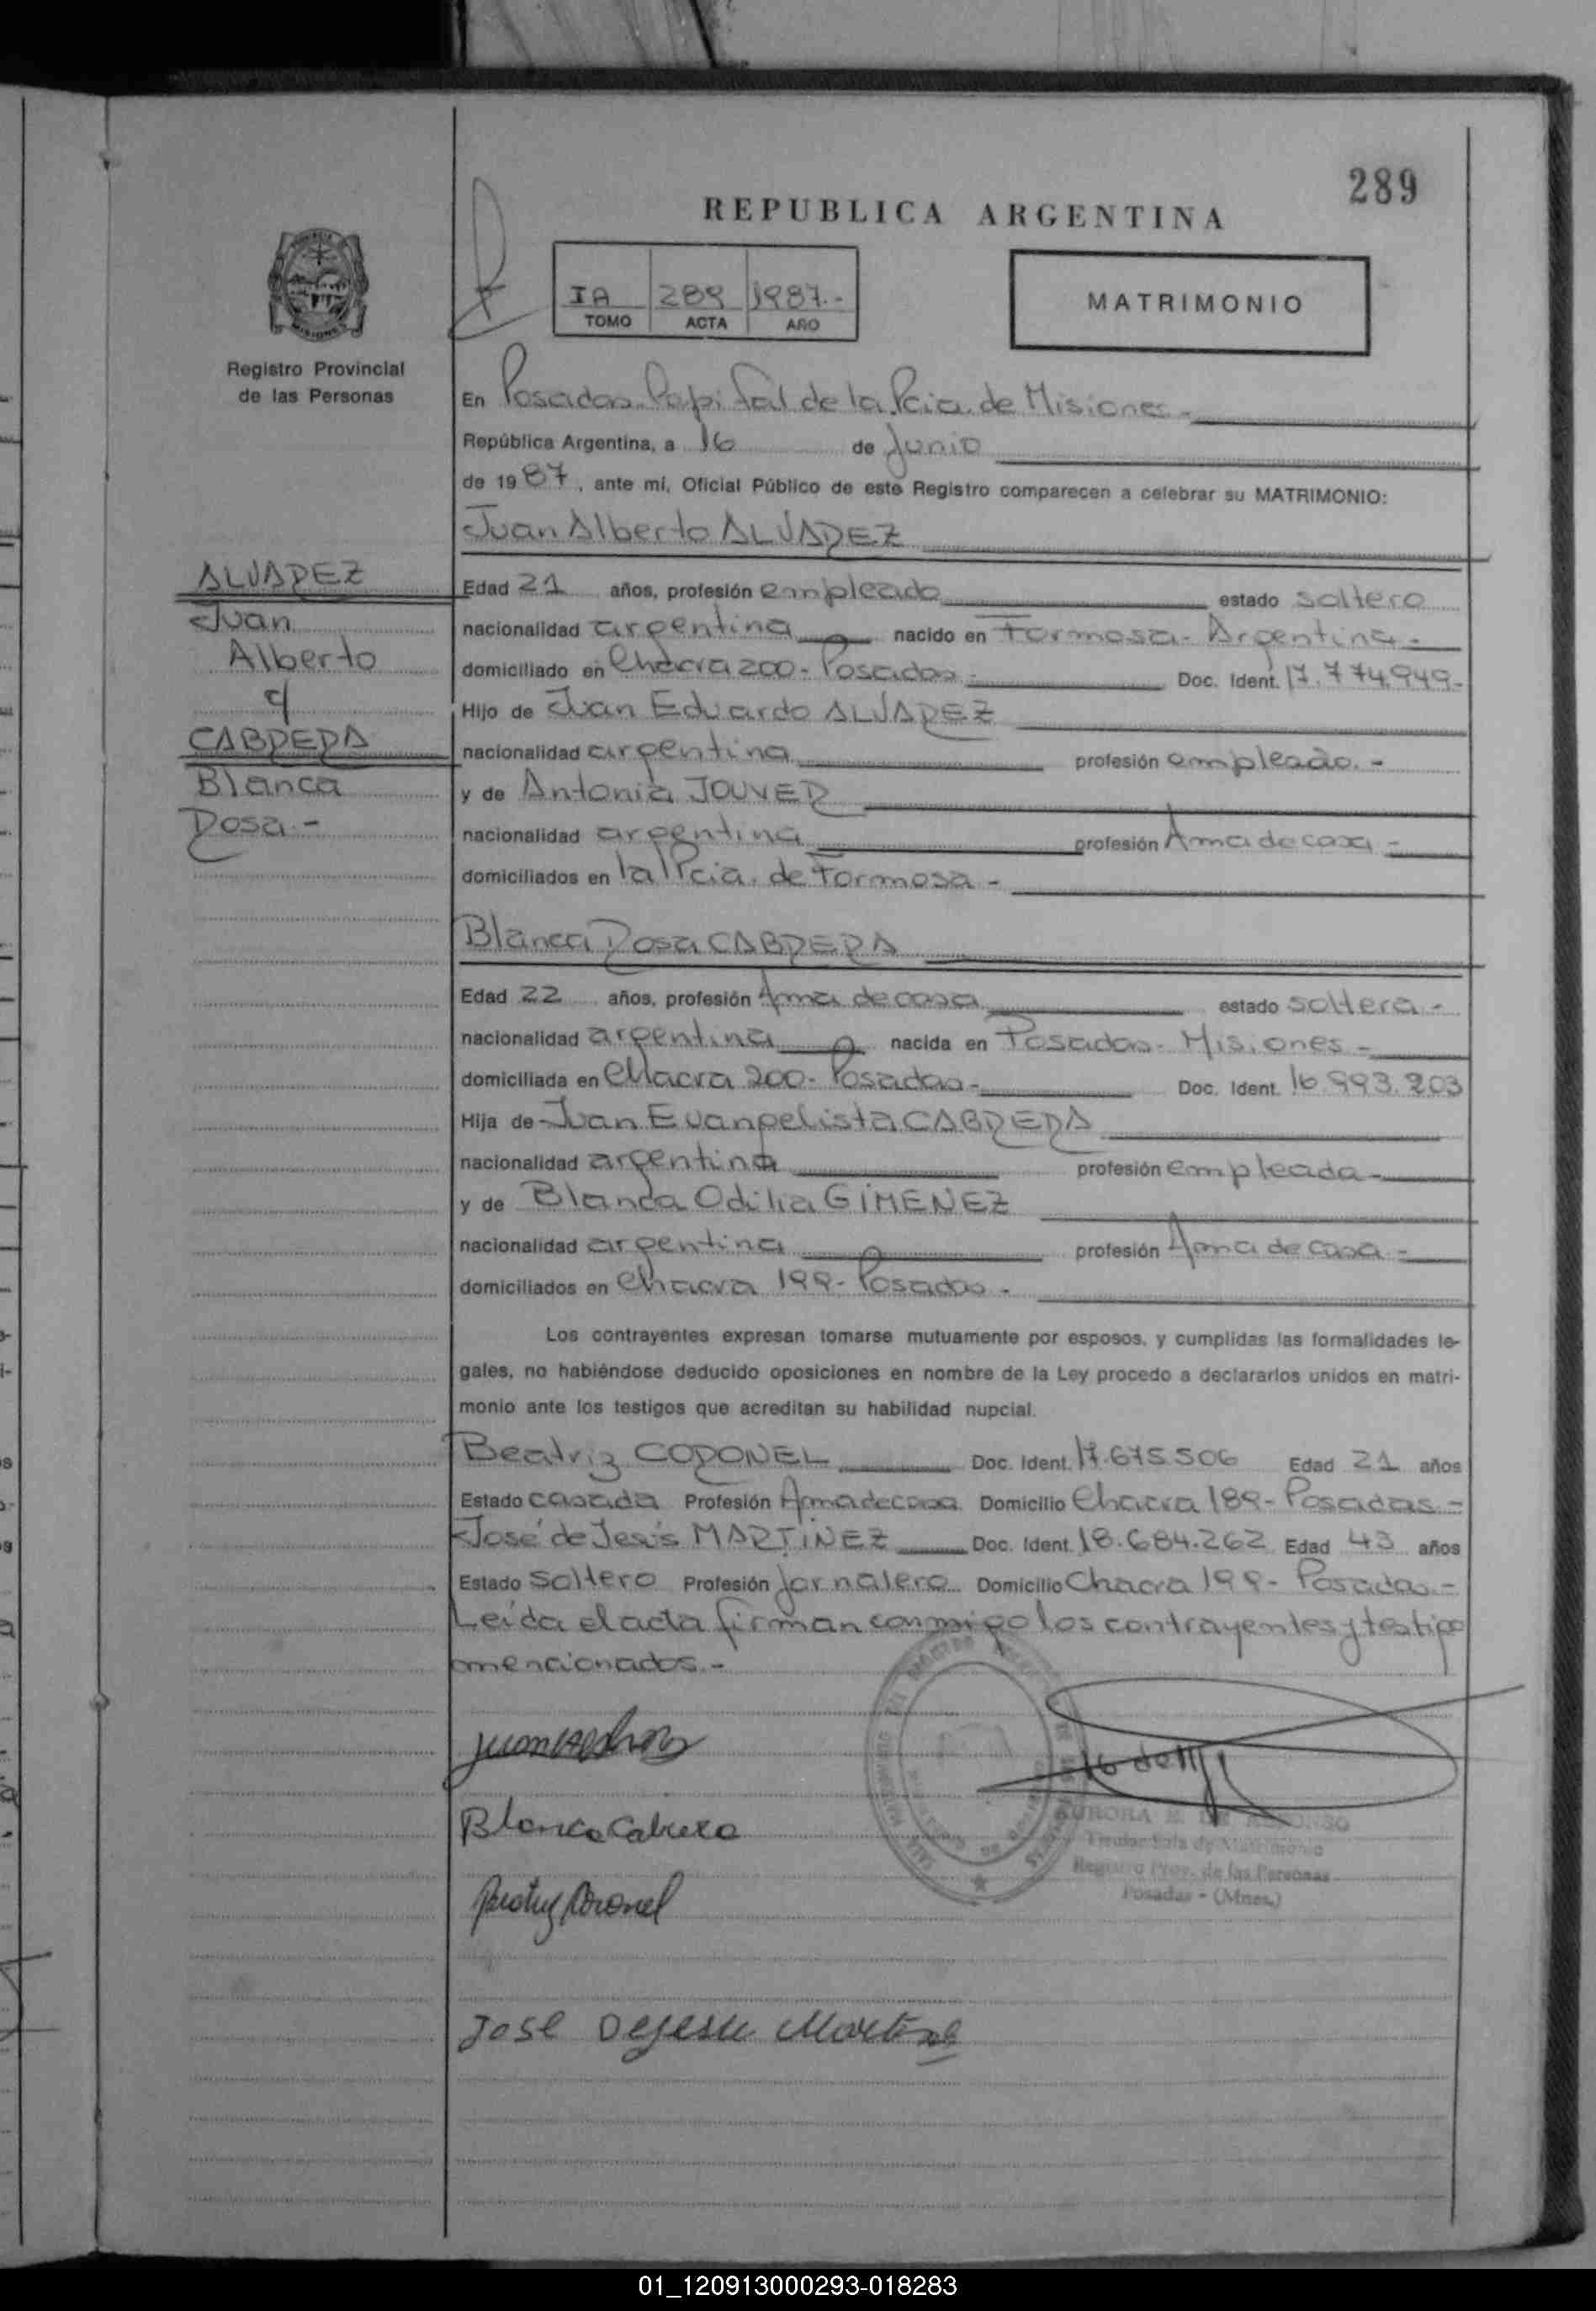 289
REPUBLICA ARGENTINA
IA 289 1987.-
TOMO ACTA AÑO
MATRIMONIO
Registro Provincial
de las Personas
En Posadas Capital de la Pcia. de Misiones -
República Argentina, a 16 de Junio
de 1987, ante mí, Oficial Público de este Registro comparecen a celebrar su MATRIMONIO:
Juan Alberto ALVAREZ
ALVAREZ
Juan
Alberto
c/
CABRERA
Blanca
Rosa.-
Edad 21 años, profesión empleado estado soltero
nacionalidad argentina nacido en Formosa - Argentina -
domiciliado en Chacra 200 - Posadas - Doc. Ident. 17.774.949-
Hijo de Juan Eduardo ALVAREZ
nacionalidad argentina profesión empleado.-
y de Antonia JOUVER
nacionalidad argentina profesión Ama de casa -
domiciliados en la Pcia. de Formosa -
Blanca Rosa CABRERA
Edad 22 años, profesión Ama de casa estado soltera -
nacionalidad argentina nacida en Posadas - Misiones -
domiciliada en Chacra 200 - Posadas - Doc. Ident. 16.993.203
Hija de Juan Evangelista CABRERA
nacionalidad argentina profesión empleada -
y de Blanca Odilia GIMENEZ
nacionalidad argentina profesión Ama de casa -
domiciliados en Chacra 199 - Posadas -
Los contrayentes expresan tomarse mutuamente por esposos, y cumplidas las formalidades le-
gales, no habiéndose deducido oposiciones en nombre de la Ley procedo a declararlos unidos en matri-
monio ante los testigos que acreditan su habilidad nupcial.
Beatriz CORONEL Doc. Ident. 17.675.506 Edad 21 años
Estado casada Profesión Ama de casa Domicilio Chacra 189 - Posadas -
José de Jesús MARTINEZ Doc. Ident. 18.684.262 Edad 43 años
Estado soltero Profesión jornalero Domicilio Chacra 199 - Posadas -
Leída el acta firman conmigo los contrayentes y testigo
mencionados.-
Blanca Cabrera
AURORA
Titular Sala de Matrimonio
Registro Prov. de las Personas
Posadas - (Mnes.)
Beatriz Coronel
Jose Dejesu Martinez
01_120913000293-018283